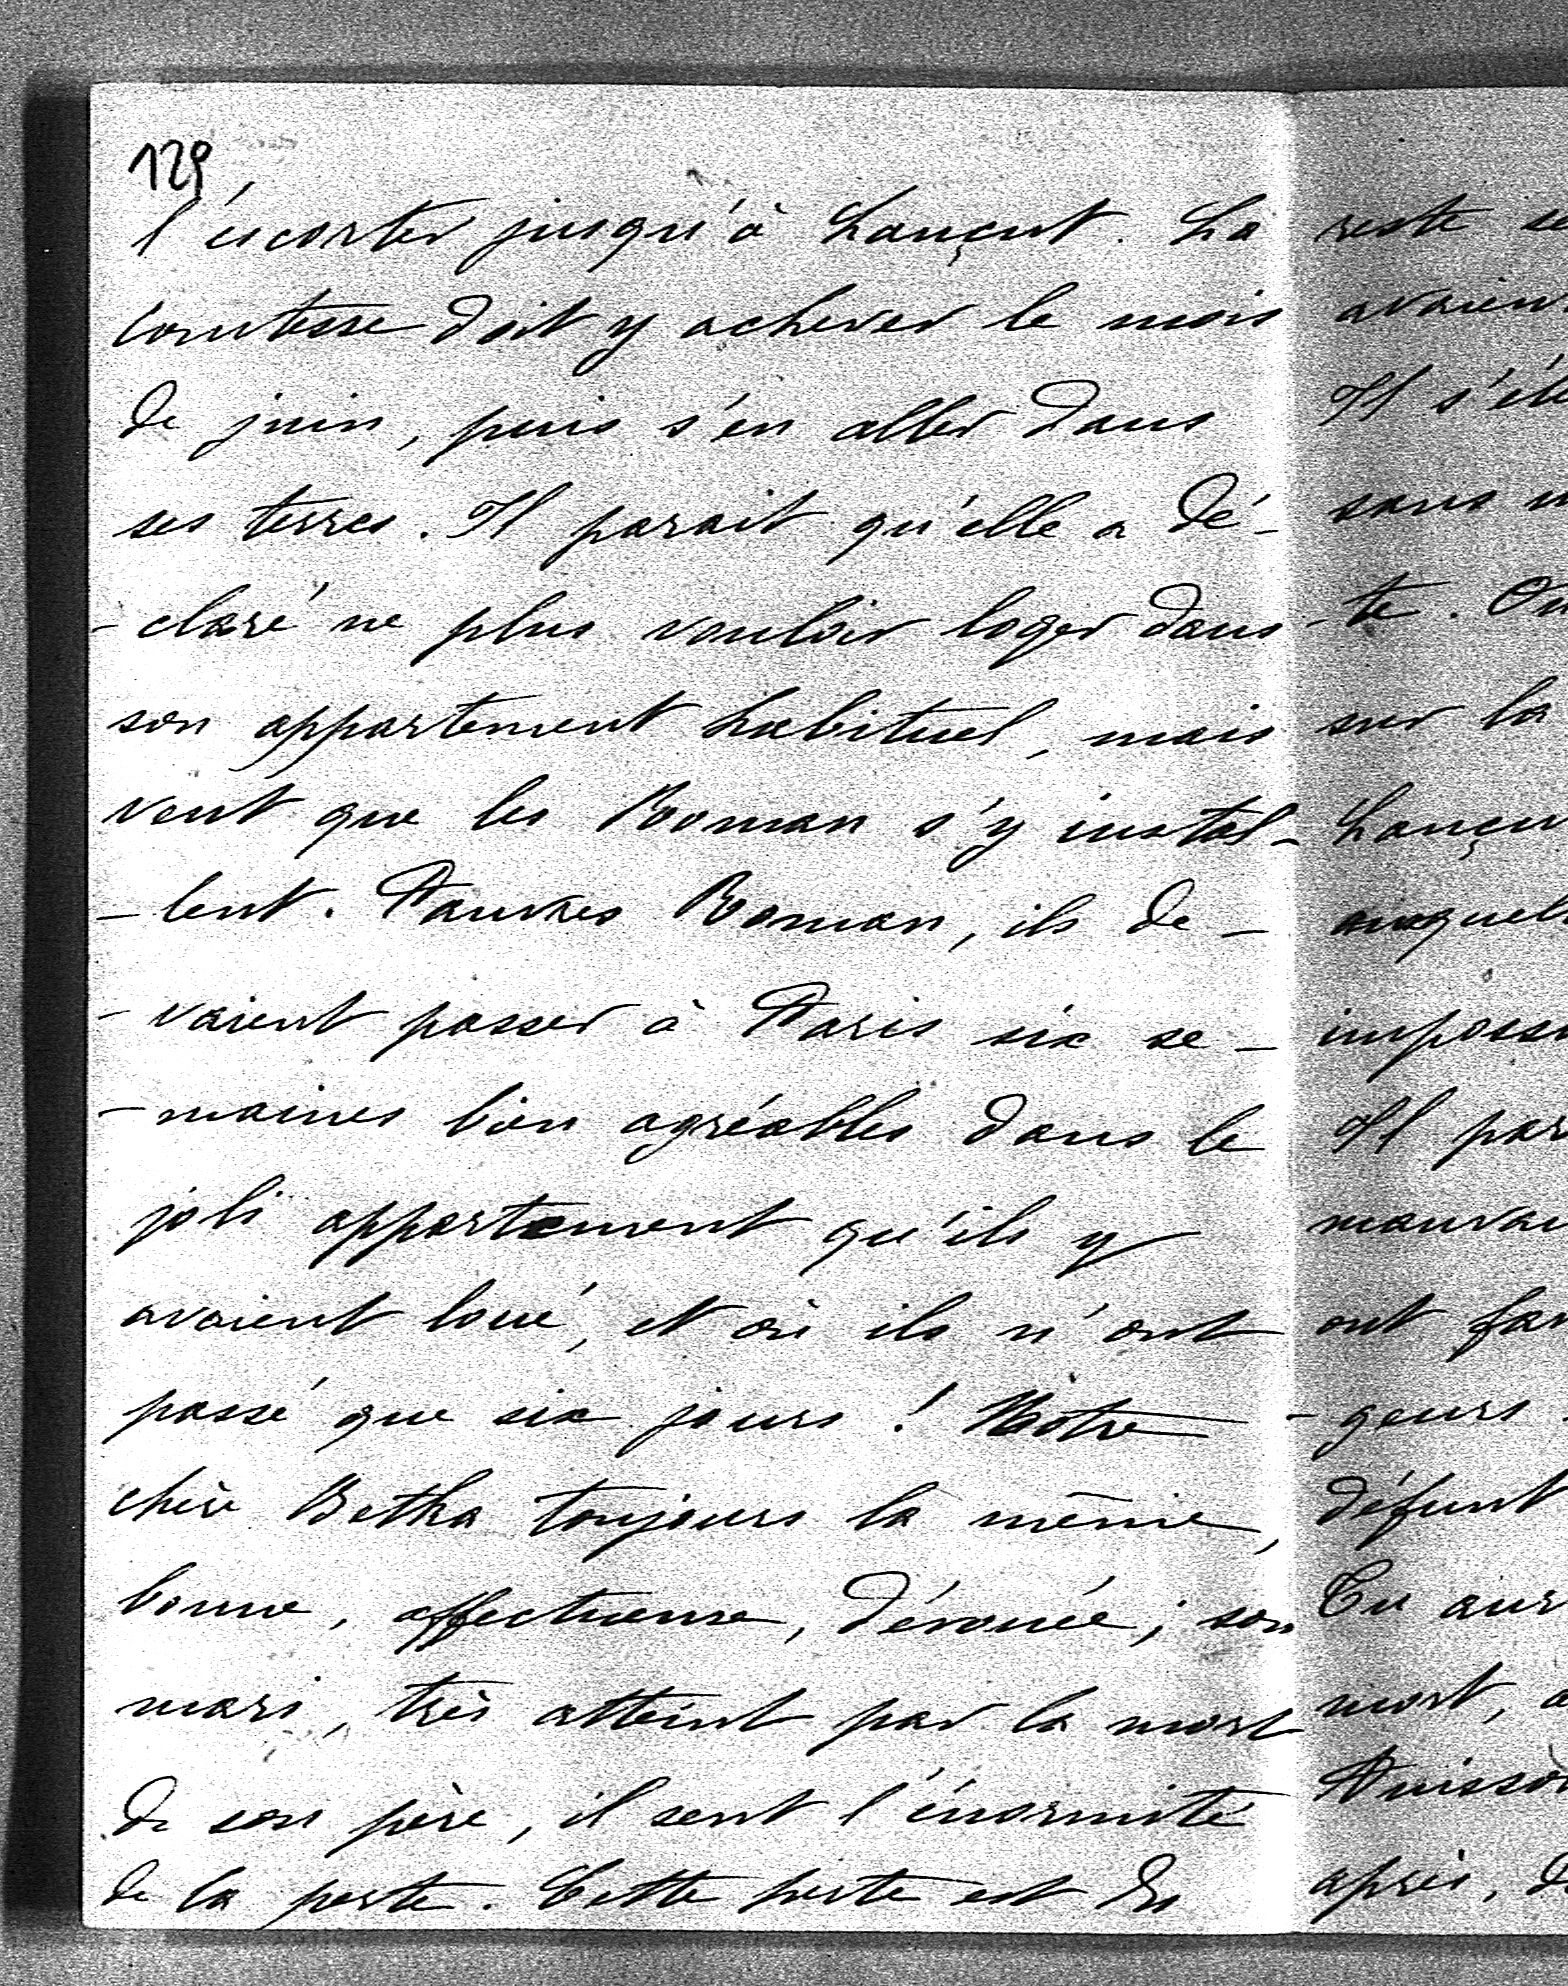 129
l'escorter jusqu'à Lançut. La
comtesse doit y achever le mois
de juin, puis s'en aller dans
ses terres. Il parait qu'elle a dé-
-claré ne plus vouloir loger dans
son appartement habituel, mais
veut que les Roman s'y instal-
-lent. Pauvres Roman, ils de-
-vaient passer à Paris six se-
-maines bien agréables dans le
joli appartement qu'ils y
avaient loué, et où ils n'ont
passé que six jours ! Notre
chère Betka toujours la même,
bonne, affectueuse, dévouée ; son
mari, très atteint par la mort
de son père, il sent l'énormité
de la perte. Cette perte est
reste
avaien
Il s'ét
sans
-te. On
sur la
Lançu
auxquels
impossi
Il par
mauvai
ont fa
-geurs
défunt
Tu aur
mort,
Puisso
après, d